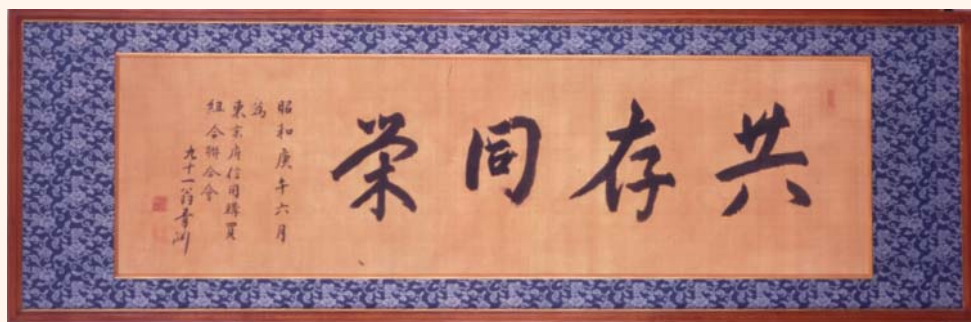 共存同栄
昭和庚午六月
為
東京府信用購買
組合聯合會
九十一翁青渊